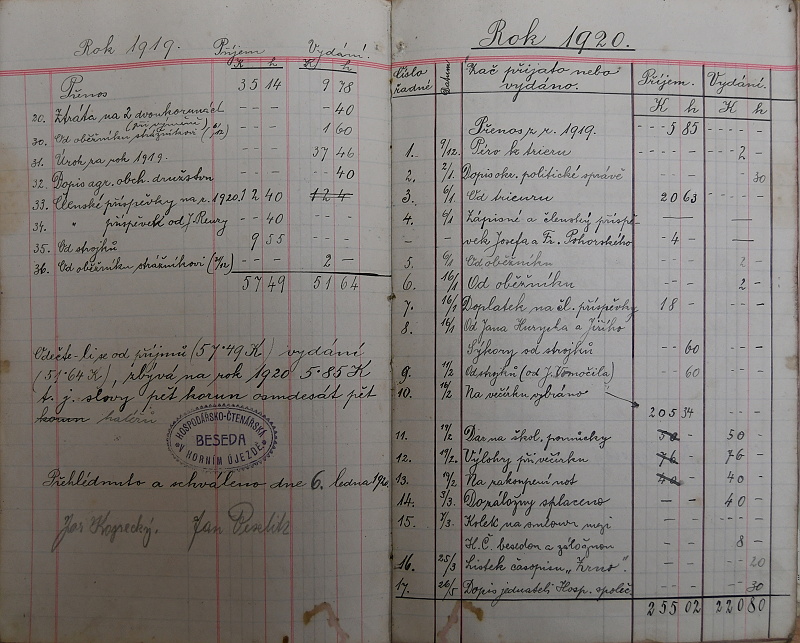 Rok 1919. Příjem Vydání.
K h K h
Přenos 35 14 9 78
20. Ztráta na 2 dvoukorunách -40
30. Od oběžníku strážníkovi 1 60
31. Úrok za rok 1919. 37 46
32. Dopis agr. obch. družstvu -40
33. Členské příspěvky na r. 1920. 12 40
34. " příspěvek od J. Reury - 40
35. Od strojků 9 55
36. Od oběžníku strážníkovi 2 -
57 49 51 64
Odečte-li se od příjmů (57·49 K) vydání
(51·64 K), zbývá na rok 1920 5·85 K
t. j. slovy pět korun osmdesát pět
korun haléřů
HOSPODÁŘSKO-ČTENÁŘSKÁ
BESEDA
V HORNÍM ÚJEZDĚ
Přehlédnuto a schváleno dne 6. ledna
Jan
Rok 1920.
Číslo řadné Datum Zač přijato nebo vydáno. Příjem. Vydání.
K h K h
Přenos z r. 1919. 5 85
1. 9/12. Péro k trieru 2 -
2. 2/1. Dopis okr. politické správě 30
3. 6/1 Od trieuru 20 63
4. 6/1 Zápisné a členský příspě-
vek Josefa a Fr. Pohorského - 4 -
5. 6/1 Od oběžníku 2 -
6. 16/1 Od oběžníku 2 -
7. 16/1 Doplatek na čl. příspěvky 18 -
8. 16/1 Od Jana Hurycha a Jiřího
Sýkory od strojků 60
9. 11/2 Od strojků (od J. Vomočila) 60
10. 16/2 Na věčírku vybráno
205 34
11. 19/2 Dar na škol. pomůcky 50 50 -
12. 19/2. Výlohy při večírku 76 76 -
13. 19/2 Na zakoupení not 40 40 -
14. 3/3. Do záložny splaceno 40 -
15. 7/3. Kolek na smlouvu mezi
H. Č. besedou a záložnou 8 -
16. 25/3 Lístek časopisu „Zrno". 20
17. 26/5 Dopis jednateli Hosp. společ. 30
255 02 220 80